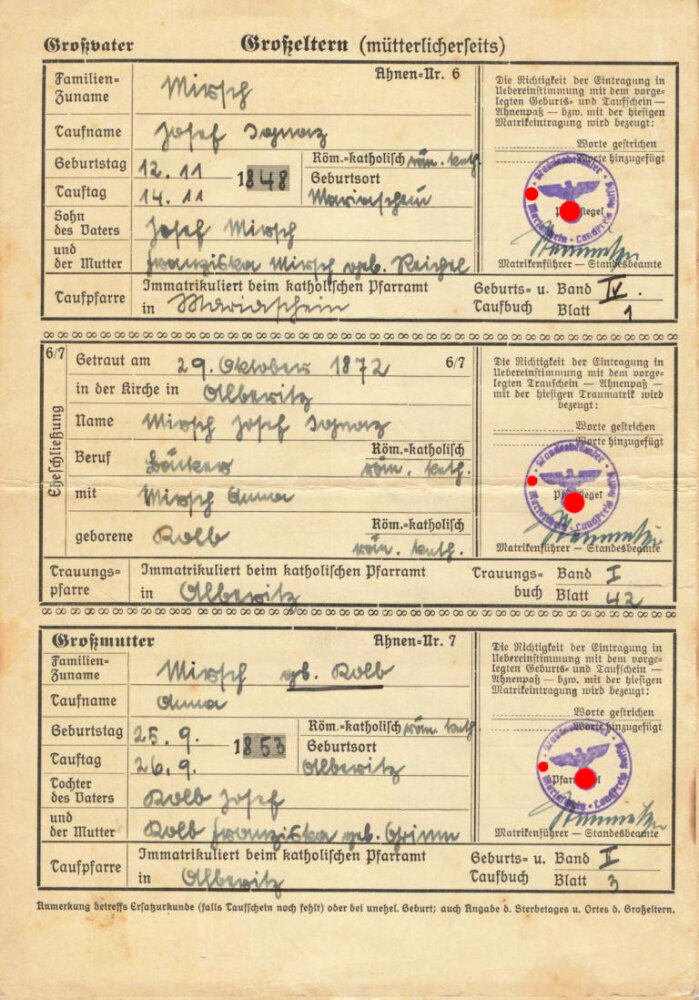 Großvater Großeltern (mütterlicherseits)
Familien=
Zuname
Mirsch
Ahnen=Nr. 6
Taufname
Josef Ignaz
Geburtstag 12. 11 1848
Röm.=katholisch röm. kath.
Tauftag 14. 11
Geburtsort
Mariaschein
Sohn
des Vaters
Josef Mirsch
und
der Mutter
Franziska Mirsch geb. Reichel
Taufpfarre
Immatrikuliert beim katholischen Pfarramt
in Mariaschein
Geburts= u. Band IV.
Taufbuch Blatt 1
Die Richtigkeit der Eintragung in
Uebereinstimmung mit dem vorge=
legten Geburts= und Taufschein —
Ahnenpaß — bzw. mit der hiesigen
Matrikeintragung wird bezeugt:
Worte gestrichen
Worte hinzugefügt
Matrikenführer — Standesbeamte
6/7 Getraut am 29. Oktober 1872 6/7
in der Kirche in Alberitz
Eheschließung
Name Mirsch Josef Ignaz
Beruf Bäcker
Röm.=katholisch
röm. kath.
mit Mirsch Anna
geborene Kolb
Röm.=katholisch
röm. kath.
Trauungs=
pfarre
Immatrikuliert beim katholischen Pfarramt
in Alberitz
Trauungs= Band I
buch Blatt 42
Die Richtigkeit der Eintragung in
Uebereinstimmung mit dem vorge=
legten Trauschein — Ahnenpaß —
mit der hiesigen Traumatrik wird
bezeugt:
Worte gestrichen
Worte hinzugefügt
Matrikenführer — Standesbeamte
Großmutter Ahnen=Nr. 7
Familien=
Zuname
Mirsch geb. Kolb
Taufname
Anna
Geburtstag 25. 9. 1853
Röm.=katholisch röm. kath.
Tauftag 26. 9.
Geburtsort
Alberitz
Tochter
des Vaters
Kolb Josef
und
der Mutter
Kolb Franziska geb. Grimm
Taufpfarre
Immatrikuliert beim katholischen Pfarramt
in Alberitz
Geburts= u. Band II
Taufbuch Blatt 3
Die Richtigkeit der Eintragung in
Uebereinstimmung mit dem vorge=
legten Geburts= und Taufschein —
Ahnenpaß — bzw. mit der hiesigen
Matrikeintragung wird bezeugt:
Worte gestrichen
Worte hinzugefügt
Matrikenführer — Standesbeamte
Anmerkung betreffs Ersatzurkunde (falls Taufschein noch fehlt) oder bei unehel. Geburt; auch Angabe d. Sterbetages u. Ortes d. Großeltern.